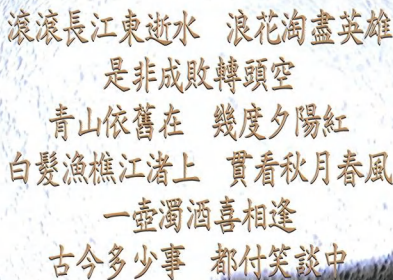 滾滾長江東逝水　浪花淘盡英雄
是非成敗轉頭空
青山依舊在　幾度夕陽紅
白髮漁樵江渚上　貫看秋月春風
一壺濁酒喜相逢
古今多少事　都付笑談中